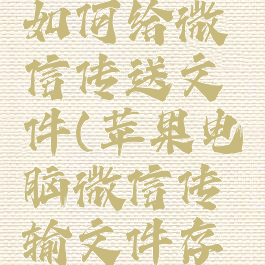 如何给微
信传送文
件(苹果电
脑微信传
输文件存